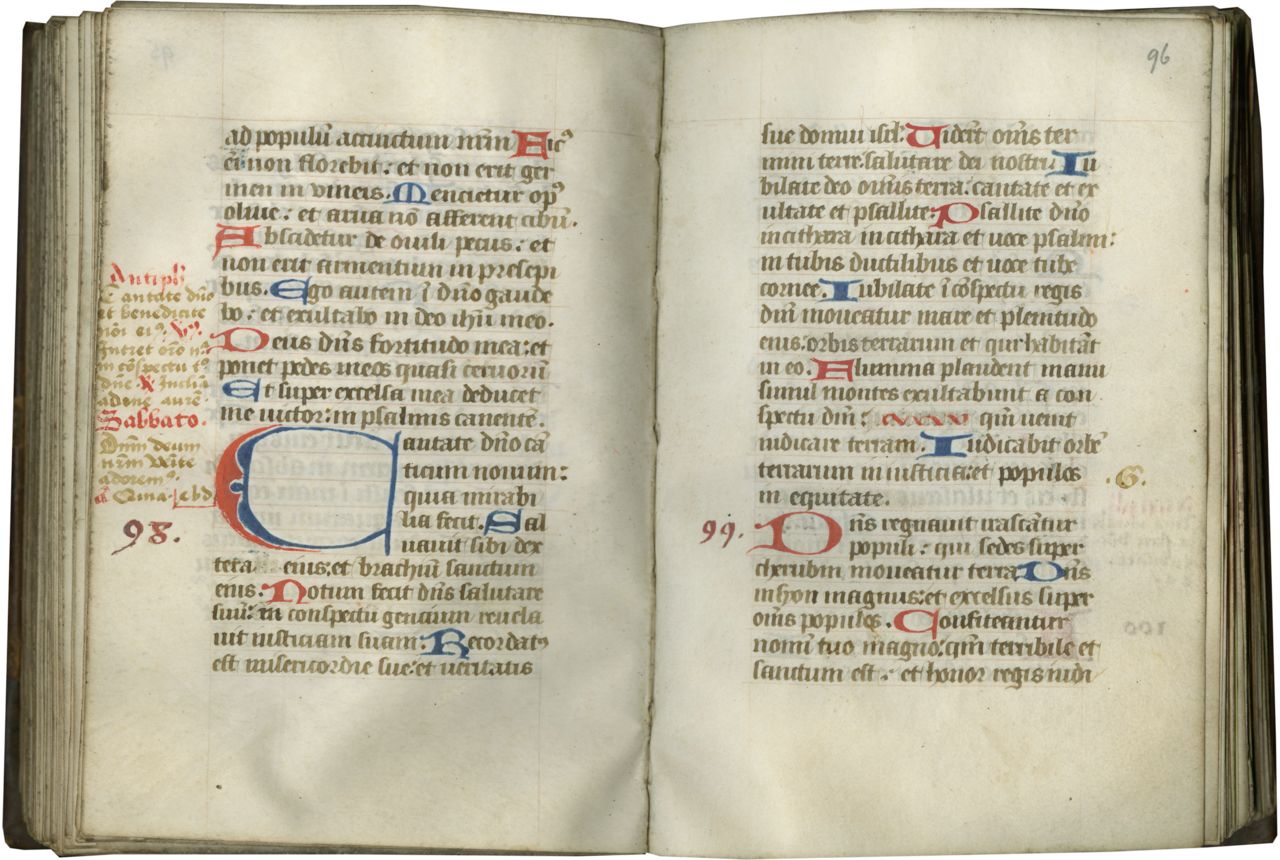 ad populū accinctum nrm̄ Fic⁹
em̄ non florebit: et non erit ger
men in vineis. Mencietur op⁹
oliue: et arua nō afferent cibū.
Abscidetur de ouili pecus: et
non erit armentum in presepi
bus. Ego autem ī dño gaude
bo: et exultabo in deo ihū meo.
Deus dñs fortitudo mea: et
ponet pedes meos quasi ceruorū
Et super excelsa mea deducet
me uictor: in psalmis canentē.
Antiph
Cantate dño
et benedicite
nōi ei⁹. V.
Intret orō
in cōspectu t⁰
dñe R Inclīa
Sabbato.
Dñm deum
nrm Venite
adorem⁹
98.
Cantate dño cā
ticum nouum:
quia mirabi
lia fecit. Sal
uauit sibi dex
tera eius: et brachiū sanctum
eius. Notum fecit dñs salutare
suū: in conspectu gencium reuela
uit iusticiam suam. Recordat⁹
est misericordie sue: et ueritatis
96
sue domui isrl: Viderūt om̄s ter
mini terre: salutare dei nostri. Iu
bilate deo om̄is terra: cantate et ex
ultate et psallite: Psallite dño
in cithara in cithara et uoce psalmi:
in tubis ductilibus et uoce tube
cornee. Iubilate ī cōspectu regis
dñi moueatur mare et plenitudo
eius: orbis terrarum et qui habitāt
in eo. Flumina plaudent manu
simul montes exultabunt a con
spectu dñi: qm̄ uenit
iudicare terram. Iudicabit orbē
terrarum in iusticia: et populos
in equitate.
.G.
99.
Dñs regnauit irascātur
populi: qui sedes super
cherubin moueatur terra. Dñs
in syon magnus: et excelsus super
om̄s populos. Confiteantur
nomī tuo magno: qm̄ terribile et
sanctum est: et honor regis iudi